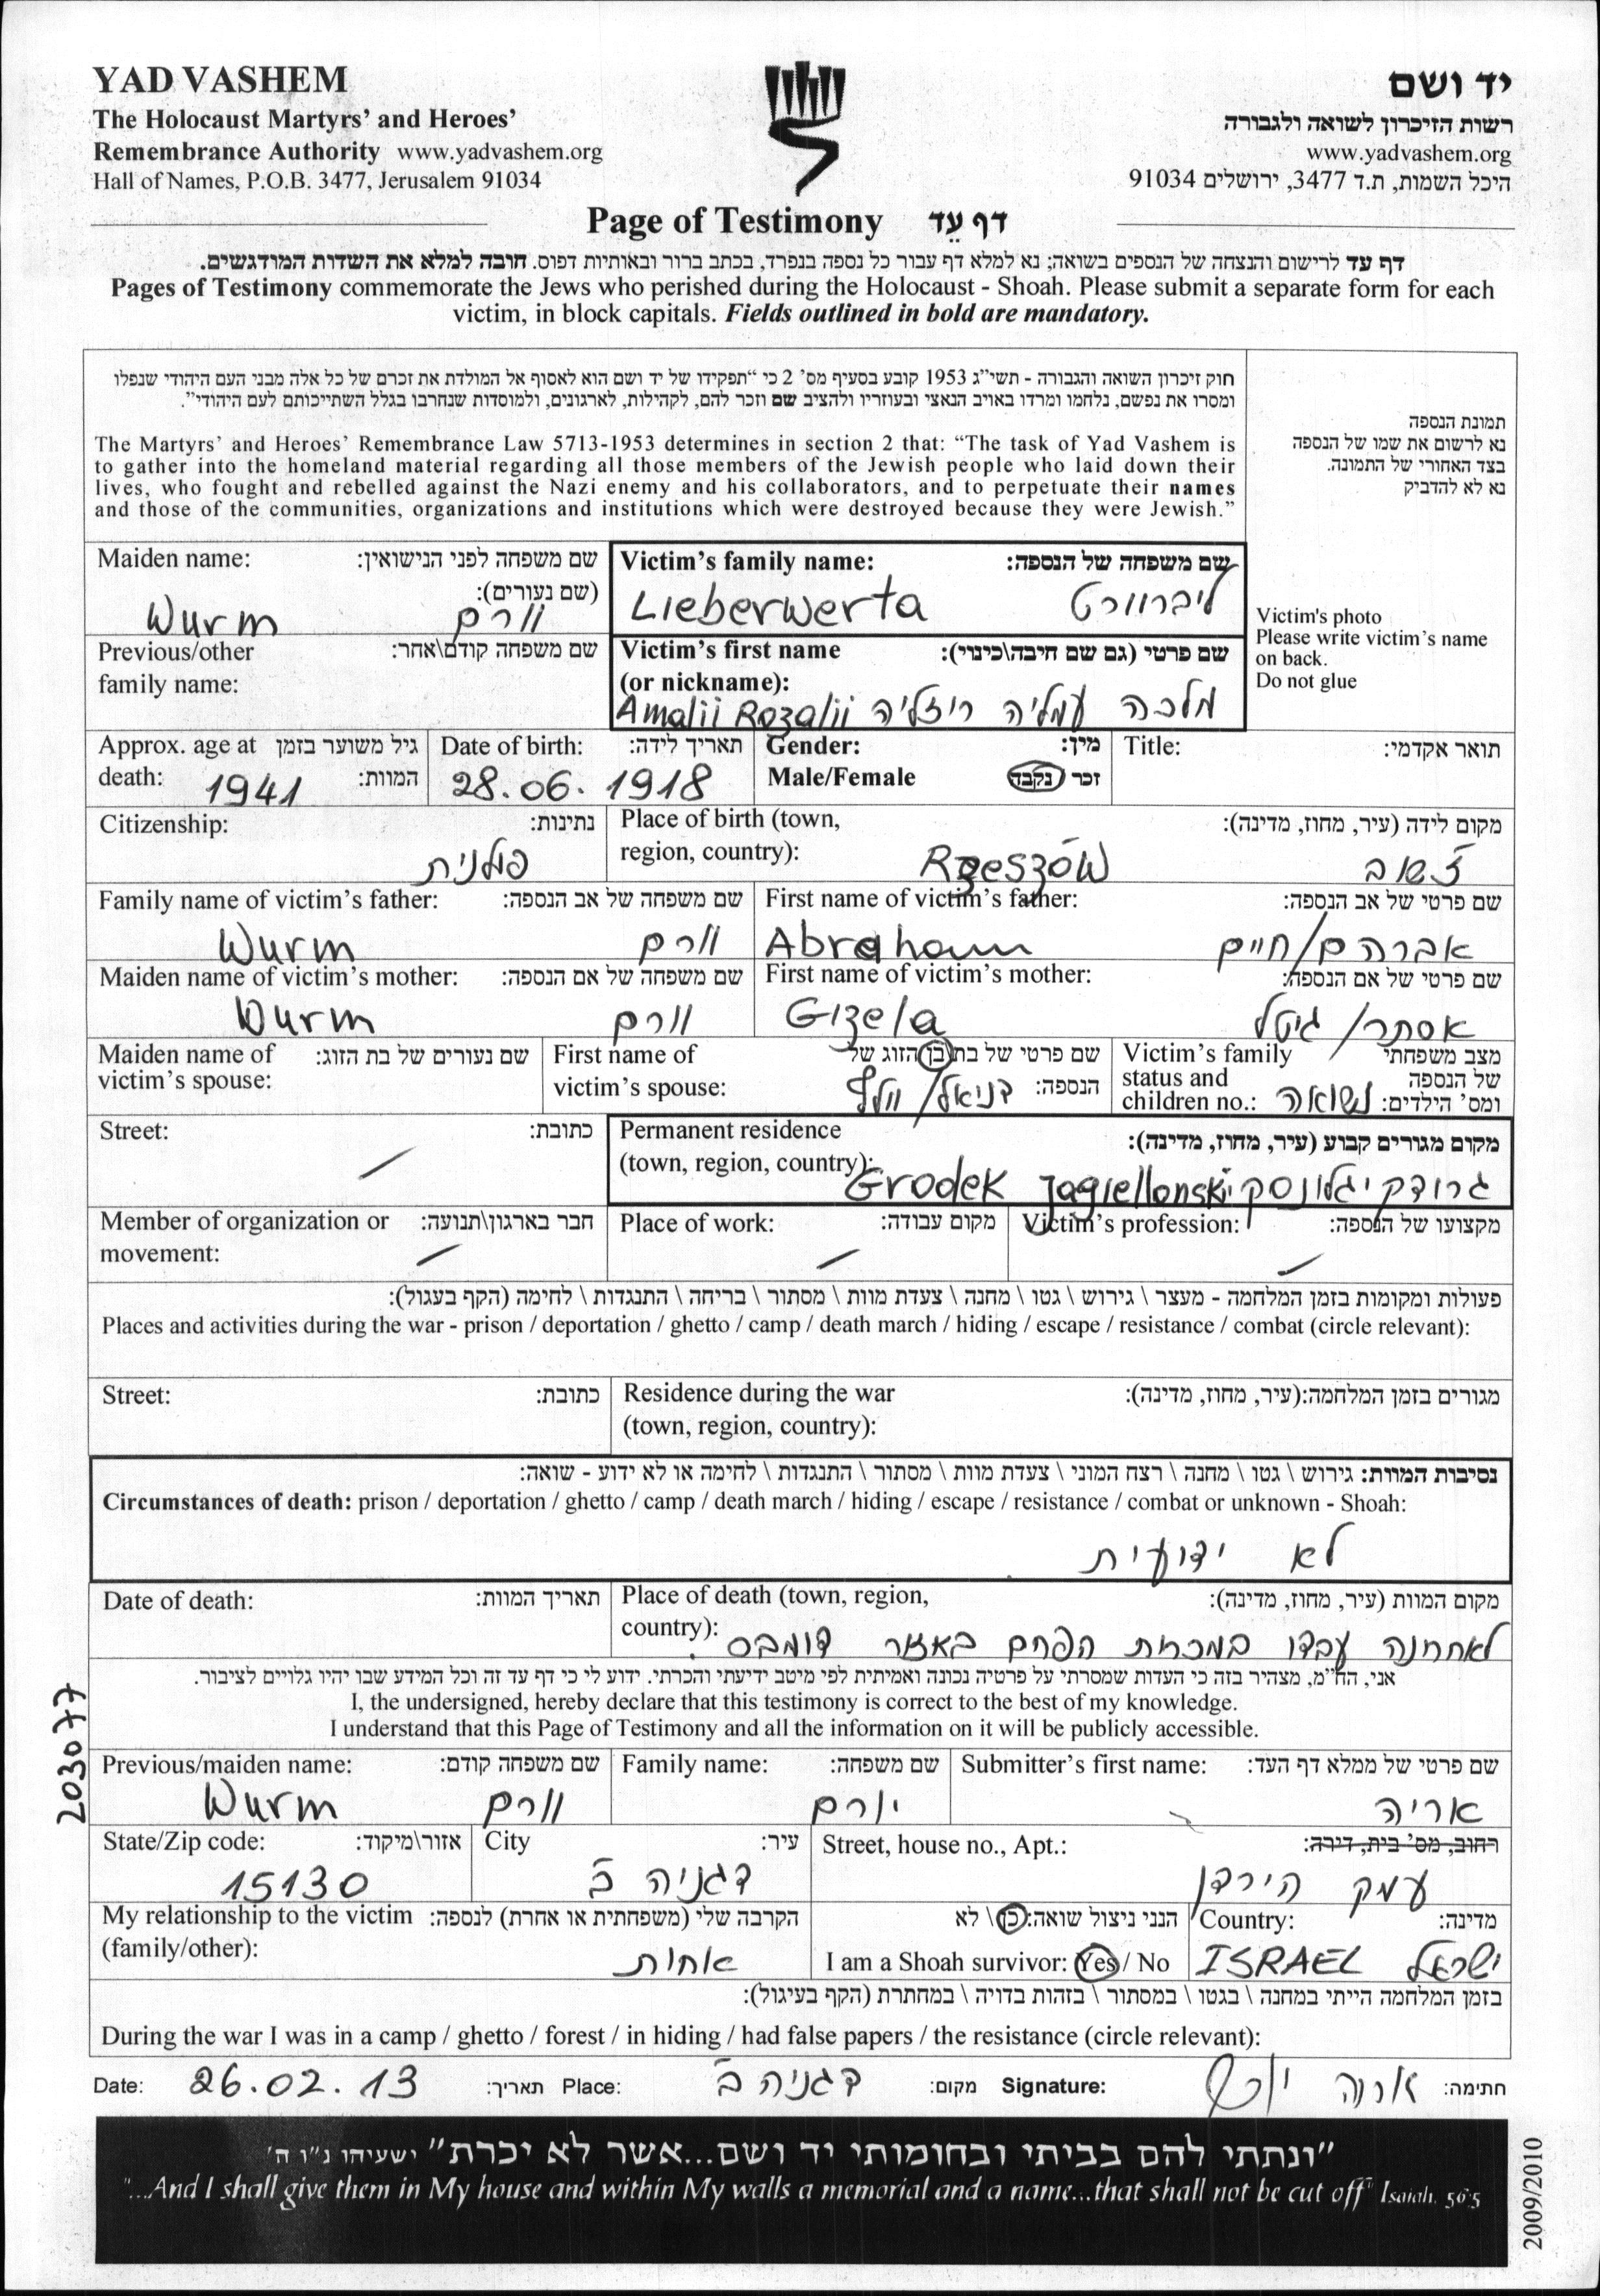 YAD VASHEM
The Holocaust Martyrs' and Heroes'
Remembrance Authority www.yadvashem.org
Hall of Names, P.O.B. 3477, Jerusalem 91034
יד ושם
רשות הזיכרון לשואה ולגבורה
www.yadvashem.org
היכל השמות, ת.ד 3477, ירושלים 91034
Page of Testimony דף עֵד
דף עד לרישום והנצחה של הנספים בשואה; נא למלא דף עבור כל נספה בנפרד, בכתב ברור ובאותיות דפוס. חובה למלא את השדות המודגשים.
Pages of Testimony commemorate the Jews who perished during the Holocaust - Shoah. Please submit a separate form for each
victim, in block capitals. Fields outlined in bold are mandatory.
חוק זיכרון השואה והגבורה - תשי"ג 1953 קובע בסעיף מס' 2 כי "תפקידו של יד ושם הוא לאסוף אל המולדת את זכרם של כל אלה מבני העם היהודי שנפלו
ומסרו את נפשם, נלחמו ומרדו באויב הנאצי ובעוזריו ולהציב שם וזכר להם, לקהילות, לארגונים, ולמוסדות שנחרבו בגלל השתייכותם לעם היהודי".
The Martyrs' and Heroes' Remembrance Law 5713-1953 determines in section 2 that: "The task of Yad Vashem is
to gather into the homeland material regarding all those members of the Jewish people who laid down their
lives, who fought and rebelled against the Nazi enemy and his collaborators, and to perpetuate their names
and those of the communities, organizations and institutions which were destroyed because they were Jewish."
תמונת הנספה
נא לרשום את שמו של הנספה
בצד האחורי של התמונה.
נא לא להדביק
Victim's photo
Please write victim's name
on back.
Do not glue
Maiden name: שם משפחה לפני הנישואין:
(שם נעורים):
Wurm וורם
Victim's family name: שם משפחה של הנספה:
Lieberwerta ליברוורט
Previous/other שם משפחה קודם\אחר:
family name:
Victim's first name שם פרטי (גם שם חיבה\כינוי):
(or nickname):
Amalii Rozalii מלכה עמליה רוזליה
Approx. age at גיל משוער בזמן
death: 1941 המוות:
Date of birth: תאריך לידה:
28.06.1918
Gender: מין:
Male/Female זכר/נקבה
Title: תואר אקדמי:
Citizenship: נתינות:
פולנית
Place of birth (town, מקום לידה (עיר, מחוז, מדינה):
region, country): Rzeszów ז'שוב
Family name of victim's father: שם משפחה של אב הנספה:
Wurm וורם
First name of victim's father: שם פרטי של אב הנספה:
Abraham אברהם/חיים
Maiden name of victim's mother: שם משפחה של אם הנספה:
Wurm וורם
First name of victim's mother: שם פרטי של אם הנספה:
Gizela אסתר/גיטל
Maiden name of שם נעורים של בת הזוג:
victim's spouse:
First name of שם פרטי של בת\בן הזוג של
victim's spouse: הנספה: דניאל/וולף
Victim's family מצב משפחתי
status and של הנספה
children no.: ומס' הילדים: נשואה
Street: כתובת:
Permanent residence מקום מגורים קבוע (עיר, מחוז, מדינה):
(town, region, country): Grodek Jagiellonski גרודק יגלונסקי
Member of organization or חבר בארגון\תנועה:
movement:
Place of work: מקום עבודה:
Victim's profession: מקצועו של הנספה:
פעולות ומקומות בזמן המלחמה - מעצר \ גירוש \ גטו \ מחנה \ צעדת מוות \ מסתור \ בריחה \ התנגדות \ לחימה (הקף בעגול):
Places and activities during the war - prison / deportation / ghetto / camp / death march / hiding / escape / resistance / combat (circle relevant):
Street: כתובת:
Residence during the war מגורים בזמן המלחמה:(עיר, מחוז, מדינה):
(town, region, country):
נסיבות המוות: גירוש \ גטו \ מחנה \ רצח המוני \ צעדת מוות \ מסתור \ התנגדות \ לחימה או לא ידוע - שואה:
Circumstances of death: prison / deportation / ghetto / camp / death march / hiding / escape / resistance / combat or unknown - Shoah:
לא ידועית
Date of death: תאריך המוות:
Place of death (town, region, מקום המוות (עיר, מחוז, מדינה):
country): לאחרונה עבדו במכרות הפחם באזור דומבס.
אני, הח"מ, מצהיר בזה כי העדות שמסרתי על פרטיה נכונה ואמיתית לפי מיטב ידיעתי והכרתי. ידוע לי כי דף עד זה וכל המידע שבו יהיו גלויים לציבור.
I, the undersigned, hereby declare that this testimony is correct to the best of my knowledge.
I understand that this Page of Testimony and all the information on it will be publicly accessible.
203077
Previous/maiden name: שם משפחה קודם:
Wurm וורם
Family name: שם משפחה:
יורם
Submitter's first name: שם פרטי של ממלא דף העד:
אריה
State/Zip code: אזור\מיקוד:
15130
City עיר:
דגניה ב'
Street, house no., Apt.: רחוב, מס' בית, דירה:
עמק הירדן
My relationship to the victim הקרבה שלי (משפחתית או אחרת) לנספה:
(family/other): אחות
הנני ניצול שואה: כן \ לא
I am a Shoah survivor: Yes / No
Country: מדינה:
ISRAEL ישראל
בזמן המלחמה הייתי במחנה \ בגטו \ במסתור \ בזהות בדויה \ במחתרת (הקף בעיגול):
During the war I was in a camp / ghetto / forest / in hiding / had false papers / the resistance (circle relevant):
Date: 26.02.13 תאריך: Place: דגניה ב' מקום: Signature: אריה יורם חתימה:
"ונתתי להם בביתי ובחומותי יד ושם...אשר לא יכרת" ישעיהו נ"ו ה'
"...And I shall give them in My house and within My walls a memorial and a name...that shall not be cut off" Isaiah. 56:5
2009/2010